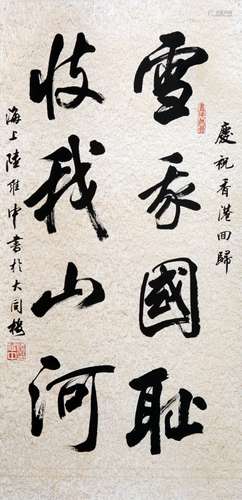 慶祝香港回歸
雪我國恥
收我山河
海上陸 中書於大同樓